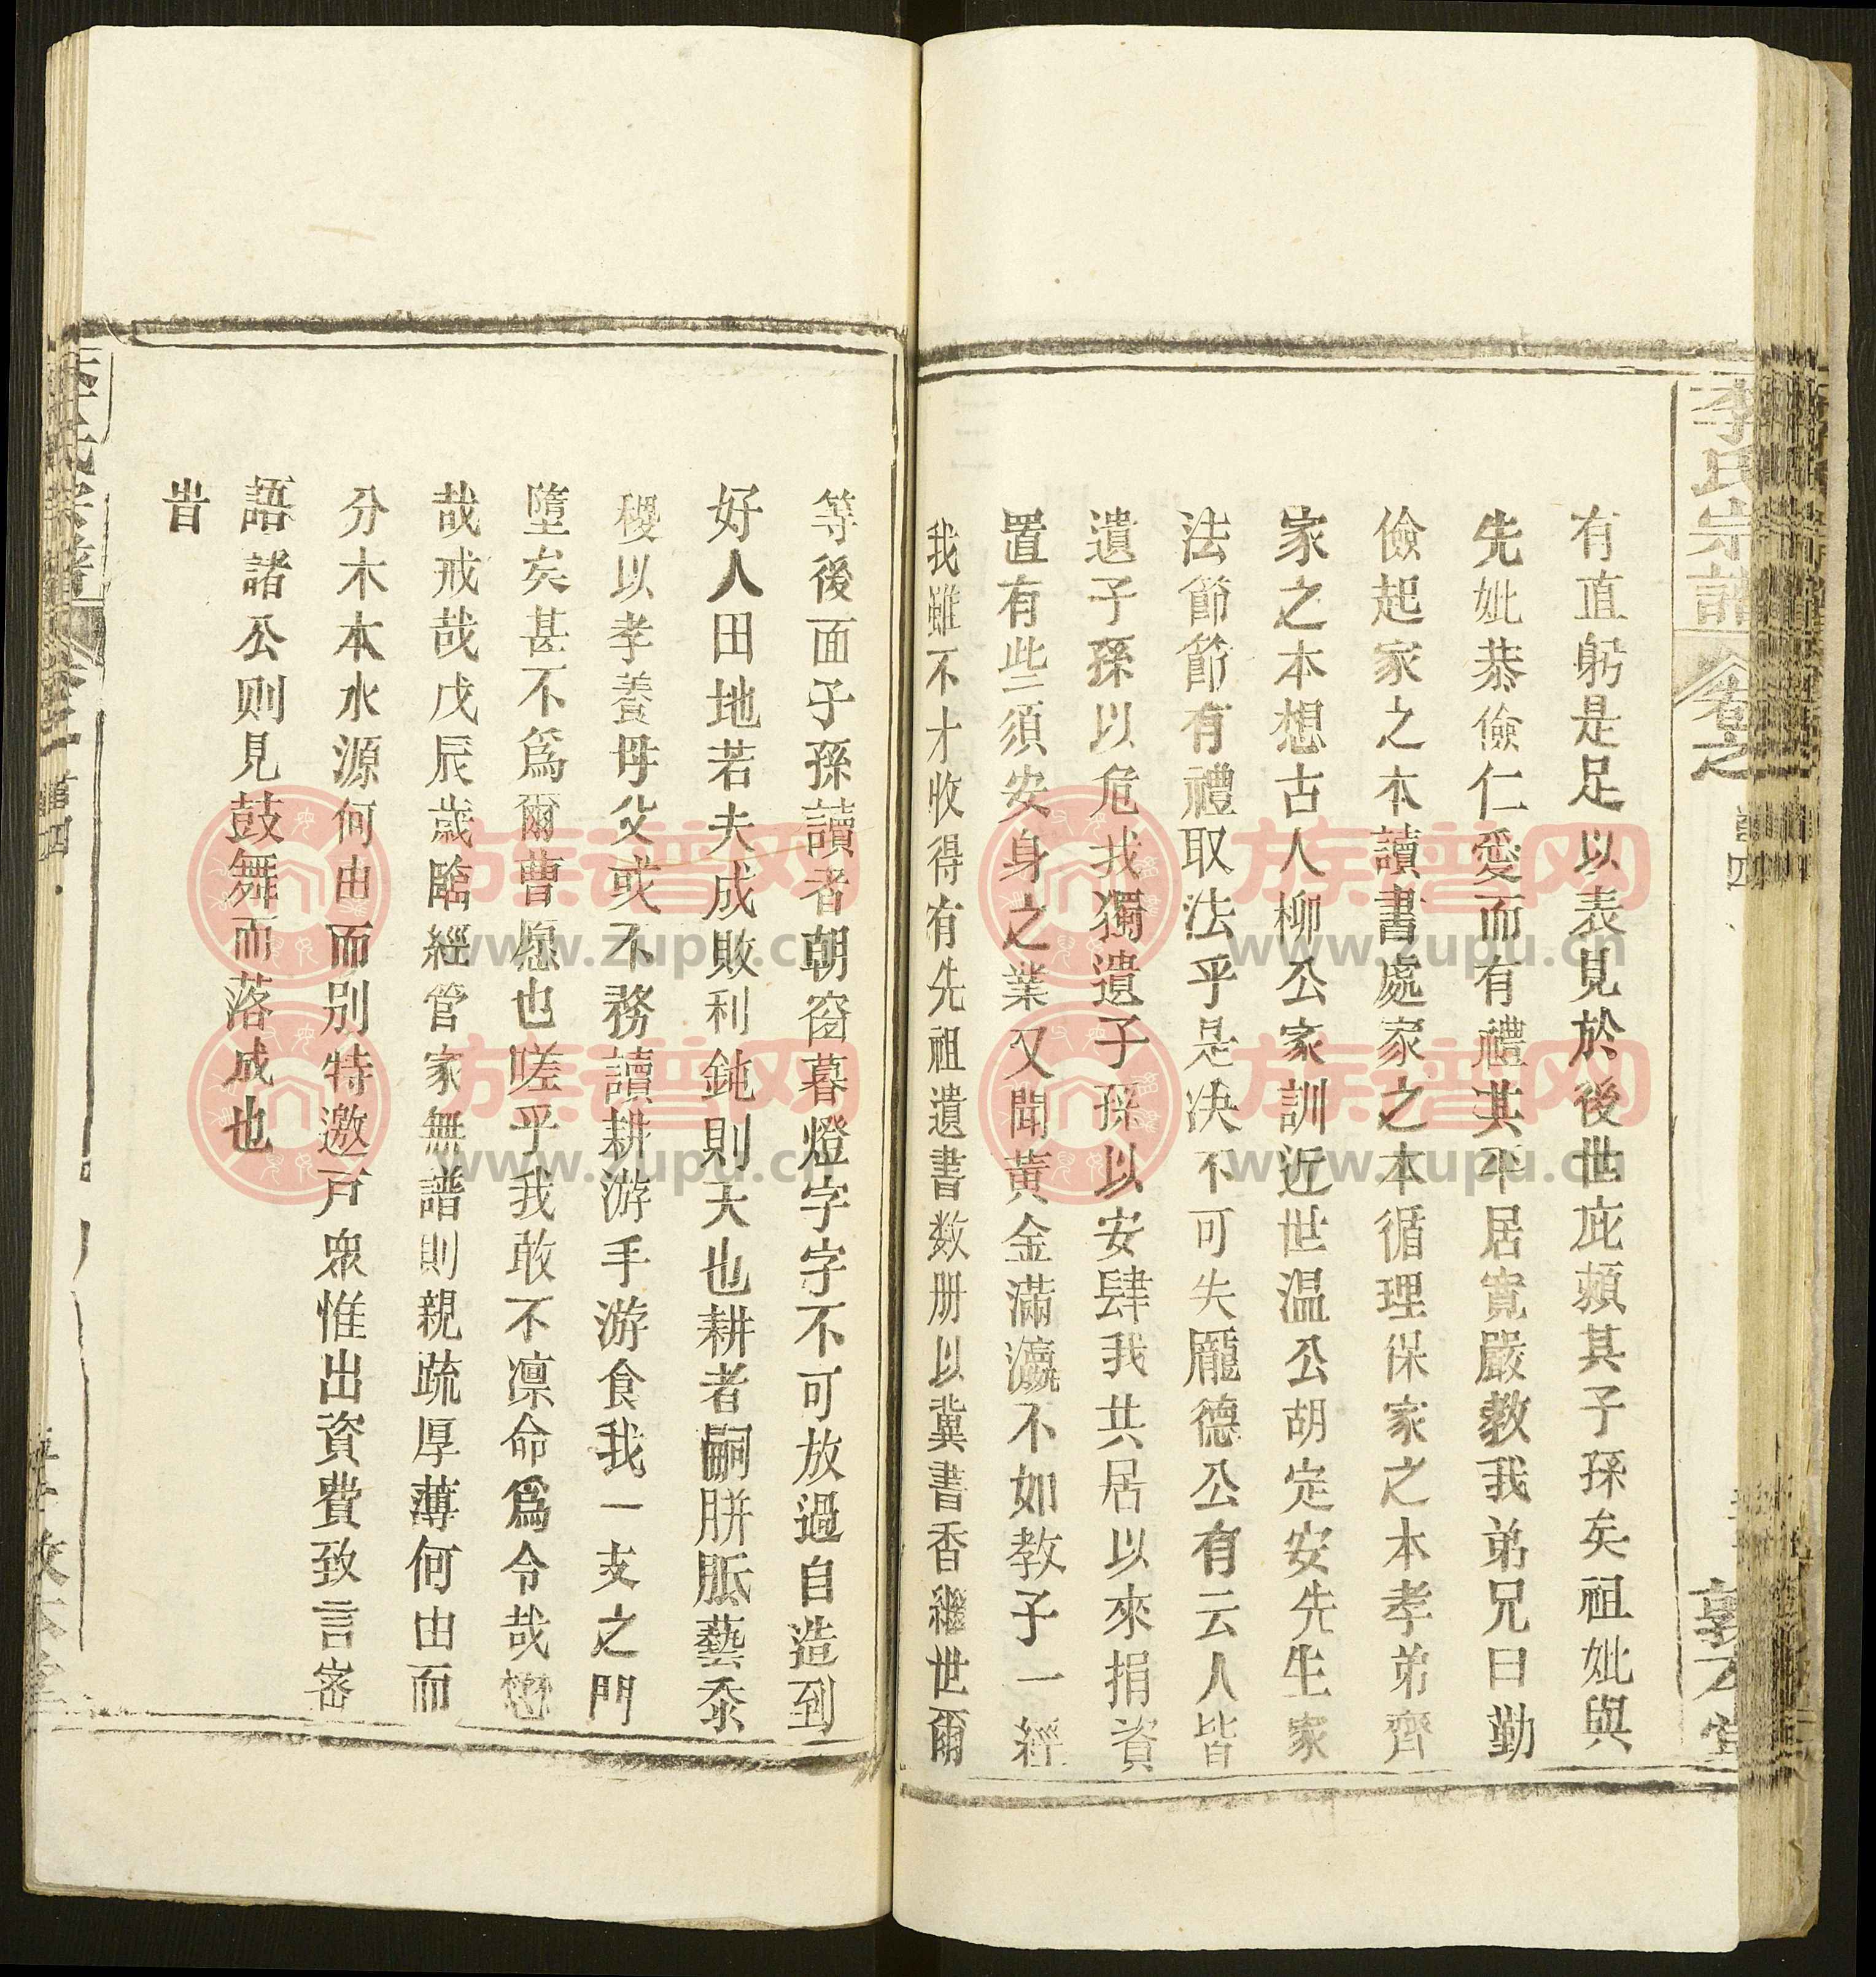 李氏宗譜
卷之
有直躬是足以表見於後世庇頼其子孫矣祖妣與
先妣恭儉仁愛而有禮其平居寛嚴教我弟兄曰勤
儉起家之本讀書處家之本循理保家之本孝弟齊
家之本想古人柳公家訓近世温公胡定安先生家
法節節有禮取法乎是决不可失龎德公有云人皆
遺子孫以危我獨遺子孫以安肆我共居以來捐資
置有些須安身之業又聞黃金滿瀛不如教子一經
我雖不才收得有先祖遺書数册以冀書香繼世爾
等後面子孫讀者朝窗暮燈字字不可放過自造到
好人田地若夫成敗利鈍則天也耕者嗣胼胝藝黍
稷以孝養母父或不務讀耕游手游食我一支之門
墮矣甚不爲爾曹愿也嗟乎我敢不凛命爲令哉
哉戒哉戊辰歲臨經管家無譜則親疏厚薄何由而
分木本水源何由而别特邀戸衆惟出資費致言
語諸公则見鼓舞而落成也
旹
族谱网
www.zupu.cn
族谱网
www.zupu.cn
族谱网
www.zupu.cn
族谱网
www.zupu.cn